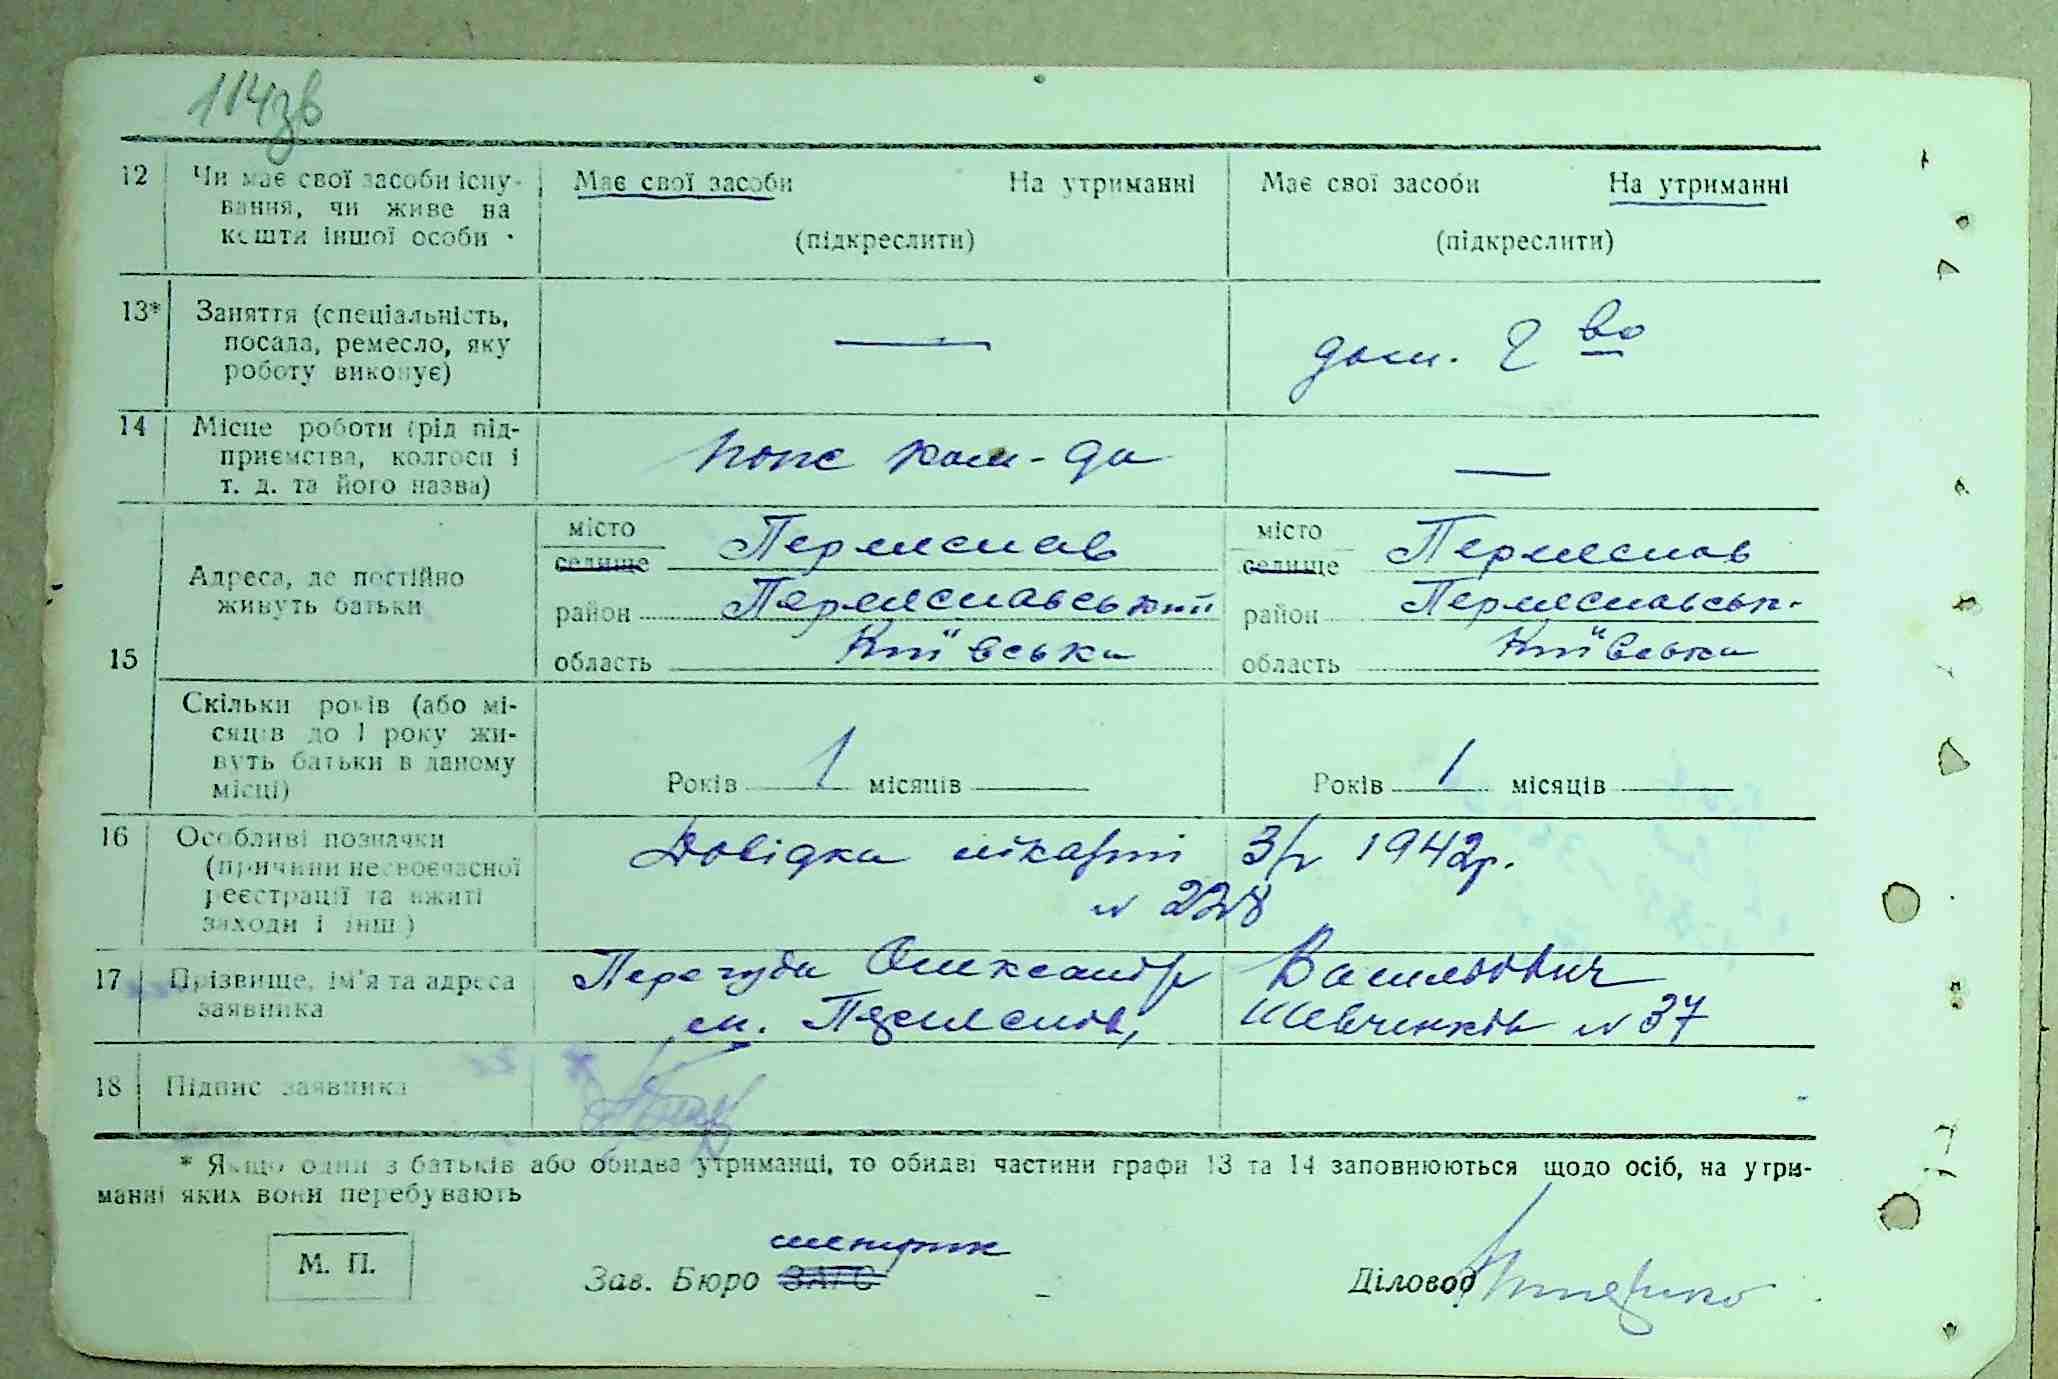 114зв
12 Чи має свої засоби існу- Має свої засоби На утриманні Має свої засоби На утриманні
вання, чи живе на
кошти іншої особи (підкреслити) (підкреслити)
13* Заняття (спеціальність,
посада, ремесло, яку — дом. г во
роботу виконує)
14 Місце роботи (рід під-
приємства, колгосп і —
т. д. та його назва)
місто Переяслав місто Переяслав
селище селище
Адреса, де постійно
живуть батьки район Переяславський район Переяславськ.
15 область Київська область Київська
Скільки років (або мі-
сяців до 1 року жи-
вуть батьки в даному Років 1 місяців Років 1 місяців
місці)
16 Особливі позначки Довідка лікарні З/р 1942р.
(причини несвоєчасної
реєстрації та вжиті № 228
заходи і інш.)
17 Прізвище, ім'я та адреса Перегуда Олександр Васильович
заявника м. Переяслав, Шевченків № 37
18 Підпис заявника
* Якщо один з батьків або обидва утриманці, то обидві частини графи 13 та 14 заповнюються щодо осіб, на утри-
манні яких вони перебувають
М. П. Зав. Бюро ЗАГС Діловод